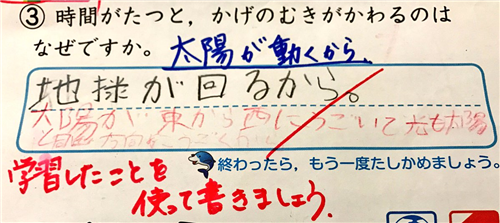 ③ 時間がたつと，かげのむきがかわるのは
なぜですか。太陽が動くから、
地球が回るから。
太陽が東から西にうごいて
学習したことを
終わったら，もう一度たしかめましょう。
使って書きましょう。